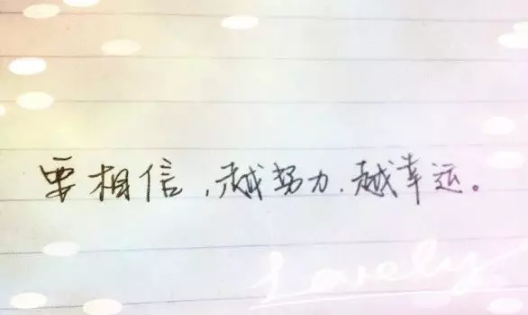 要相信,越努力,越幸运。
Lovely